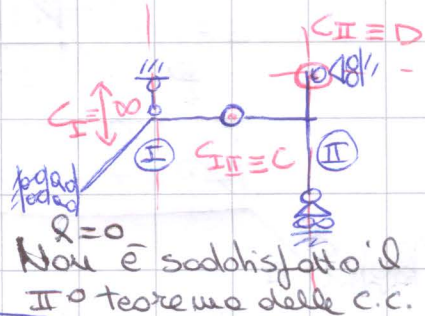 C_II ≡ D
C_I ≡ ∞
I
C_I II ≡ C
II
l=0
Non è soddisfatto il
II° teorema delle c.c.